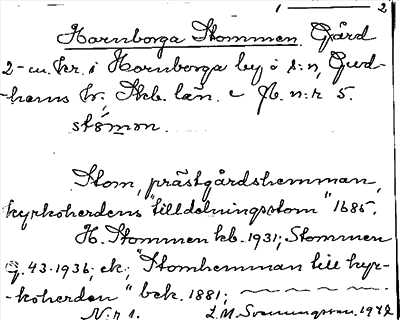 1 — 2
Hornborga Stommen. Gård
2-m. kr. i Hornborga by o s:n, Gud-
-hems hr, Skb. län. Jb. n:r 5.
stómon.
Stom, prästgårdshemman,
kyrkoherdens "tilldelningsstom" 1685.
H. Stommen kb. 1931; Stommen
G. 43. 1936; ek; "Stomhemman till kyr-
-koherden" bek. 1881;
N:r 1. L. M. Svenungsson. 1942